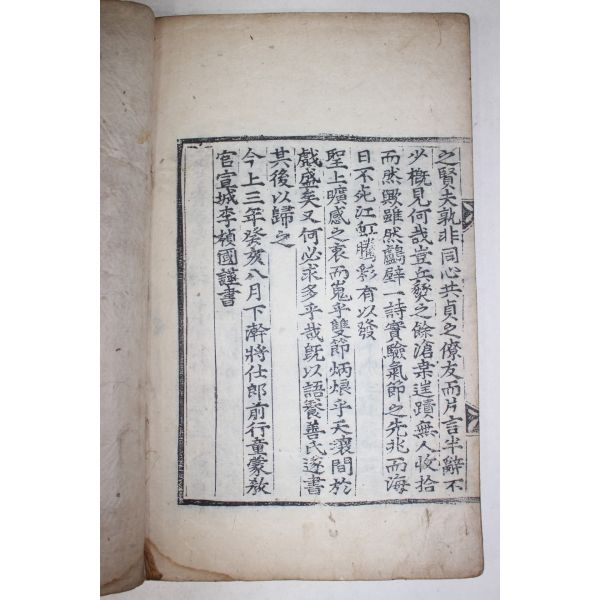 之賢夫孰非同心共貞之僚友而片言半辭不
少槪見何哉豈兵燹之餘滄桒迬蹟無人收拾
而然歟雖然鸕壁一詩實驗氣節之先兆而海
日不死江虹騰彩有以發
聖上曠感之衷而嵬乎雙節炳烺乎天瀼間於
戱盛矣又何必求多乎哉旣以語養善氏遂書
其後以歸之
今上三年癸亥八月下澣將仕郞前行童蒙敎
官宣城李楨國謹書